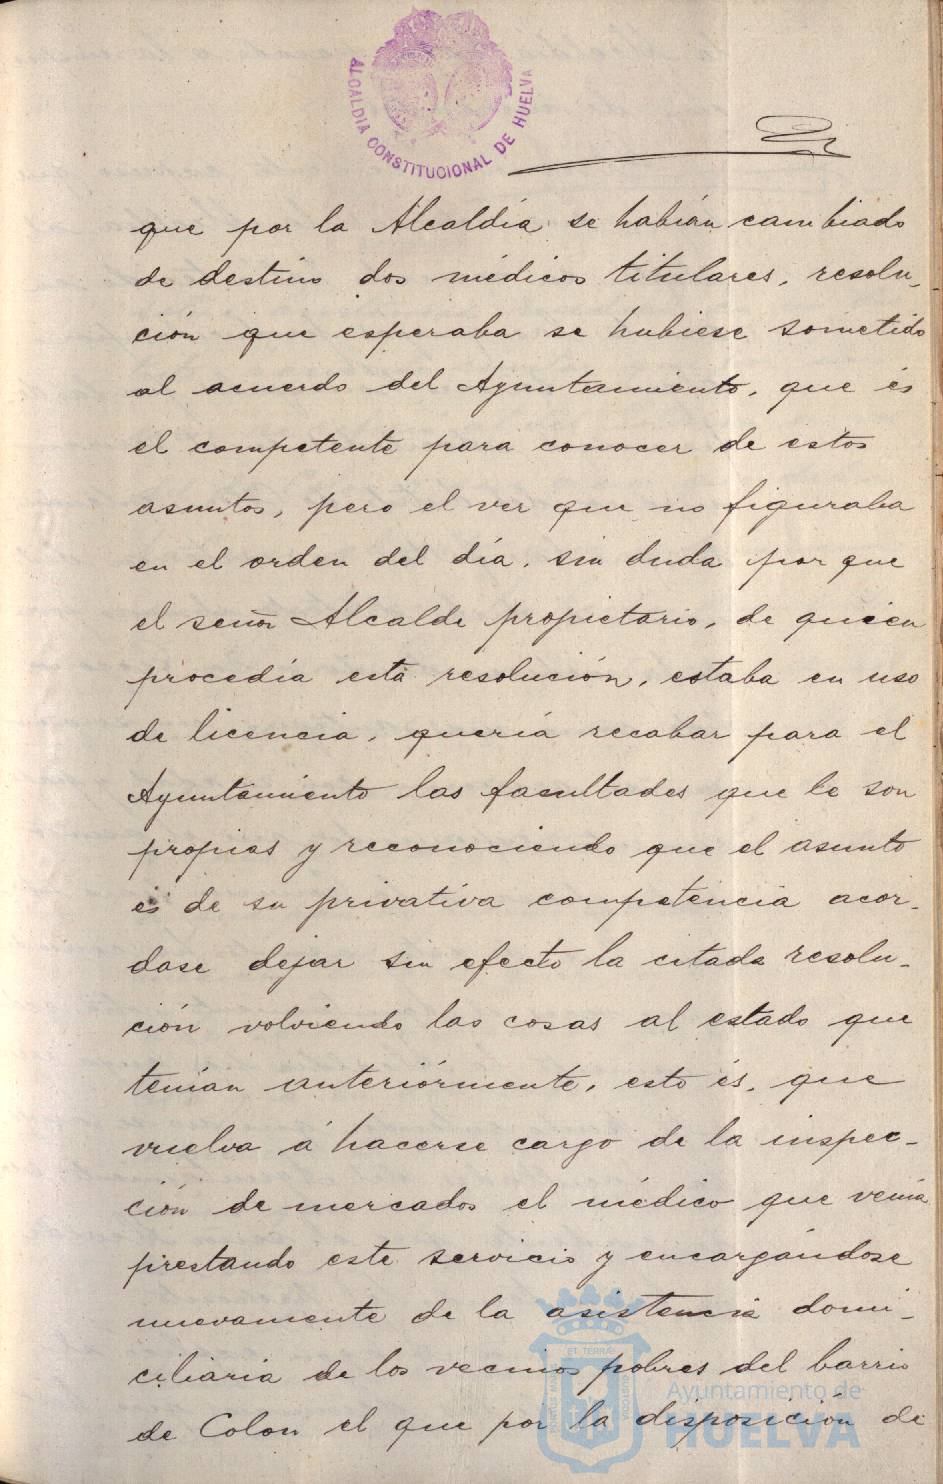 ALCALDIA CONSTITUCIONAL DE HUELVA
que por la Alcaldía se habían cambiado
de destino dos médicos titulares, resolu-
ción que esperaba se hubiese sometido
al acuerdo del Ayuntamiento, que és
el competente para conocer de estos
asuntos, pero el ver que no figuraba
en el orden del día, sin duda por que
el señor Alcalde propietario, de quien
procedía esta resolución, estaba en uso
de licencia, quería recabar para el
Ayuntamiento las facultades que le son
propias y reconociendo que el asunto
és de su privativa competencia acor-
dase dejar sin efecto la citada resolu-
ción volviendo las cosas al estado que
tenían anteriórmente, esto és, que
vuelva á hacerse cargo de la inspec-
ción de mercados el médico que venía
prestando este servicio y encargándose
nuevamente de la asistencia domi-
ciliaria de los vecinos pobres del barrio
de Colon el que por la disposición de
ET TERRAE
Ayuntamiento de
HUELVA